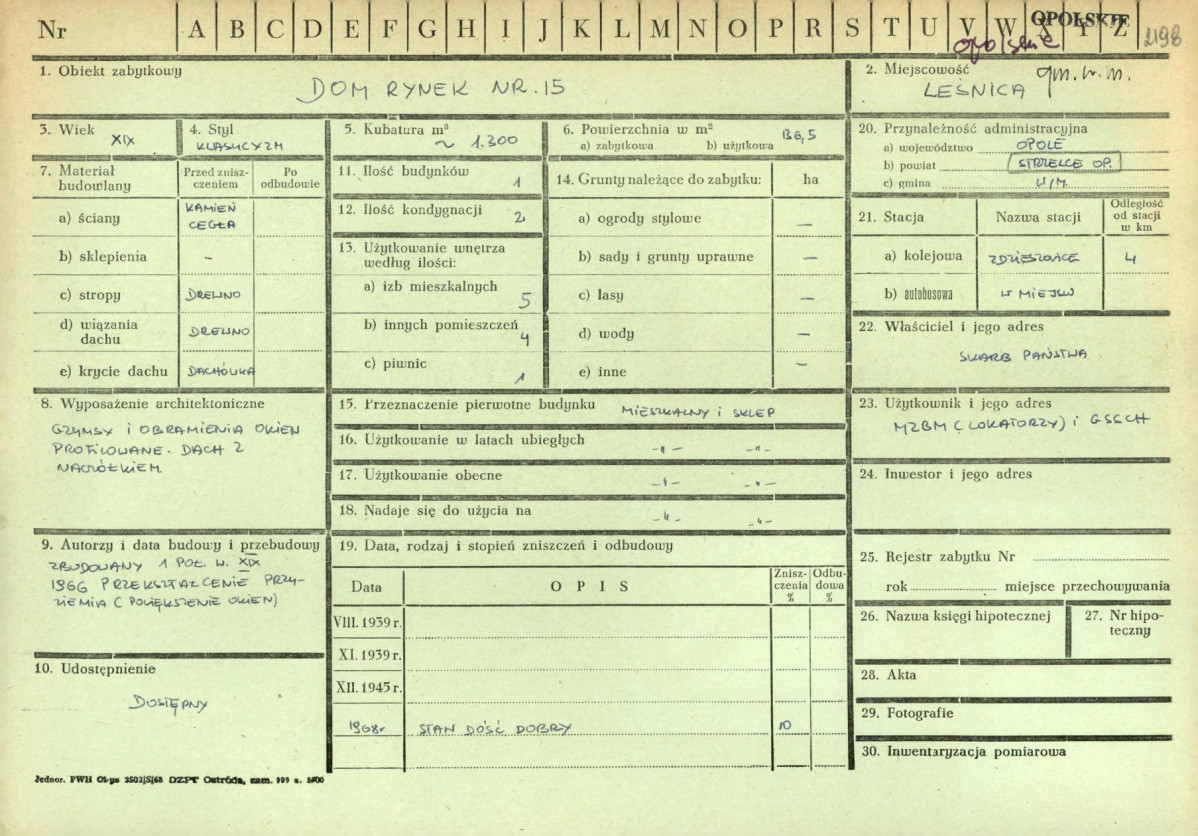 Nr A B C D E F G H I J K L M N O P R S T U V W X Y Z
OPOLSKIE
opolskie
2198
1. Obiekt zabytkowy
DOM RYNEK NR. 15
2. Miejscowość gm. w. m.
LEŚNICA
3. Wiek
XIX
4. Styl
KLASYCYZM
5. Kubatura m³
~ 1.300
6. Powierzchnia w m²
a) zabytkowa b) użytkowa
136,5
20. Przynależność administracyjna
a) województwo OPOLE
b) powiat STRZELCE OP.
c) gmina W/M.
7. Materiał budowlany
Przed zniszczeniem
Po odbudowie
a) ściany KAMIEŃ
CEGŁA
b) sklepienia -
c) stropy DREWNO
d) wiązania dachu DREWNO
e) krycie dachu DACHÓWKA
11. Ilość budynków 1
12. Ilość kondygnacji 2
13. Użytkowanie wnętrza
według ilości:
a) izb mieszkalnych 5
b) innych pomieszczeń 4
c) piwnic 1
14. Grunty należące do zabytku: ha
a) ogrody stylowe —
b) sady i grunty uprawne —
c) lasy —
d) wody —
e) inne —
21. Stacja Nazwa stacji Odległość od stacji w km
a) kolejowa ZDZIESZOWICE 4
b) autobusowa W MIEJSCU
22. Właściciel i jego adres
SKARB PAŃSTWA
8. Wyposażenie architektoniczne
GZYMSY I OBRAMIENIA OKIEN
PROFILOWANE. DACH Z
NACZÓŁKIEM
15. Przeznaczenie pierwotne budynku MIESZKALNY I SKLEP
16. Użytkowanie w latach ubiegłych -"- -"-
17. Użytkowanie obecne -"- -"-
18. Nadaje się do użycia na -"- -"-
23. Użytkownik i jego adres
MZBM (LOKATORZY) i GSSCH
24. Inwestor i jego adres
9. Autorzy i data budowy i przebudowy
ZBUDOWANY 1 POŁ. W. XIX
1966 PRZEKSZTAŁCENIE PRZY-
ZIEMIA (POWIĘKSZENIE OKIEN)
19. Data, rodzaj i stopień zniszczeń i odbudowy
Data OPIS Zniszczenia % Odbudowa %
VIII. 1939 r.
XI. 1939 r.
XII. 1945 r.
1968r STAN DOŚĆ DOBRY 10
25. Rejestr zabytku Nr
rok miejsce przechowywania
26. Nazwa księgi hipotecznej
27. Nr hipoteczny
10. Udostępnienie
DOSTĘPNY
28. Akta
29. Fotografie
30. Inwentaryzacja pomiarowa
Jednor. PWH Ol-ga 2503|S|68 DZPT Ostróda, zam. 999 n.